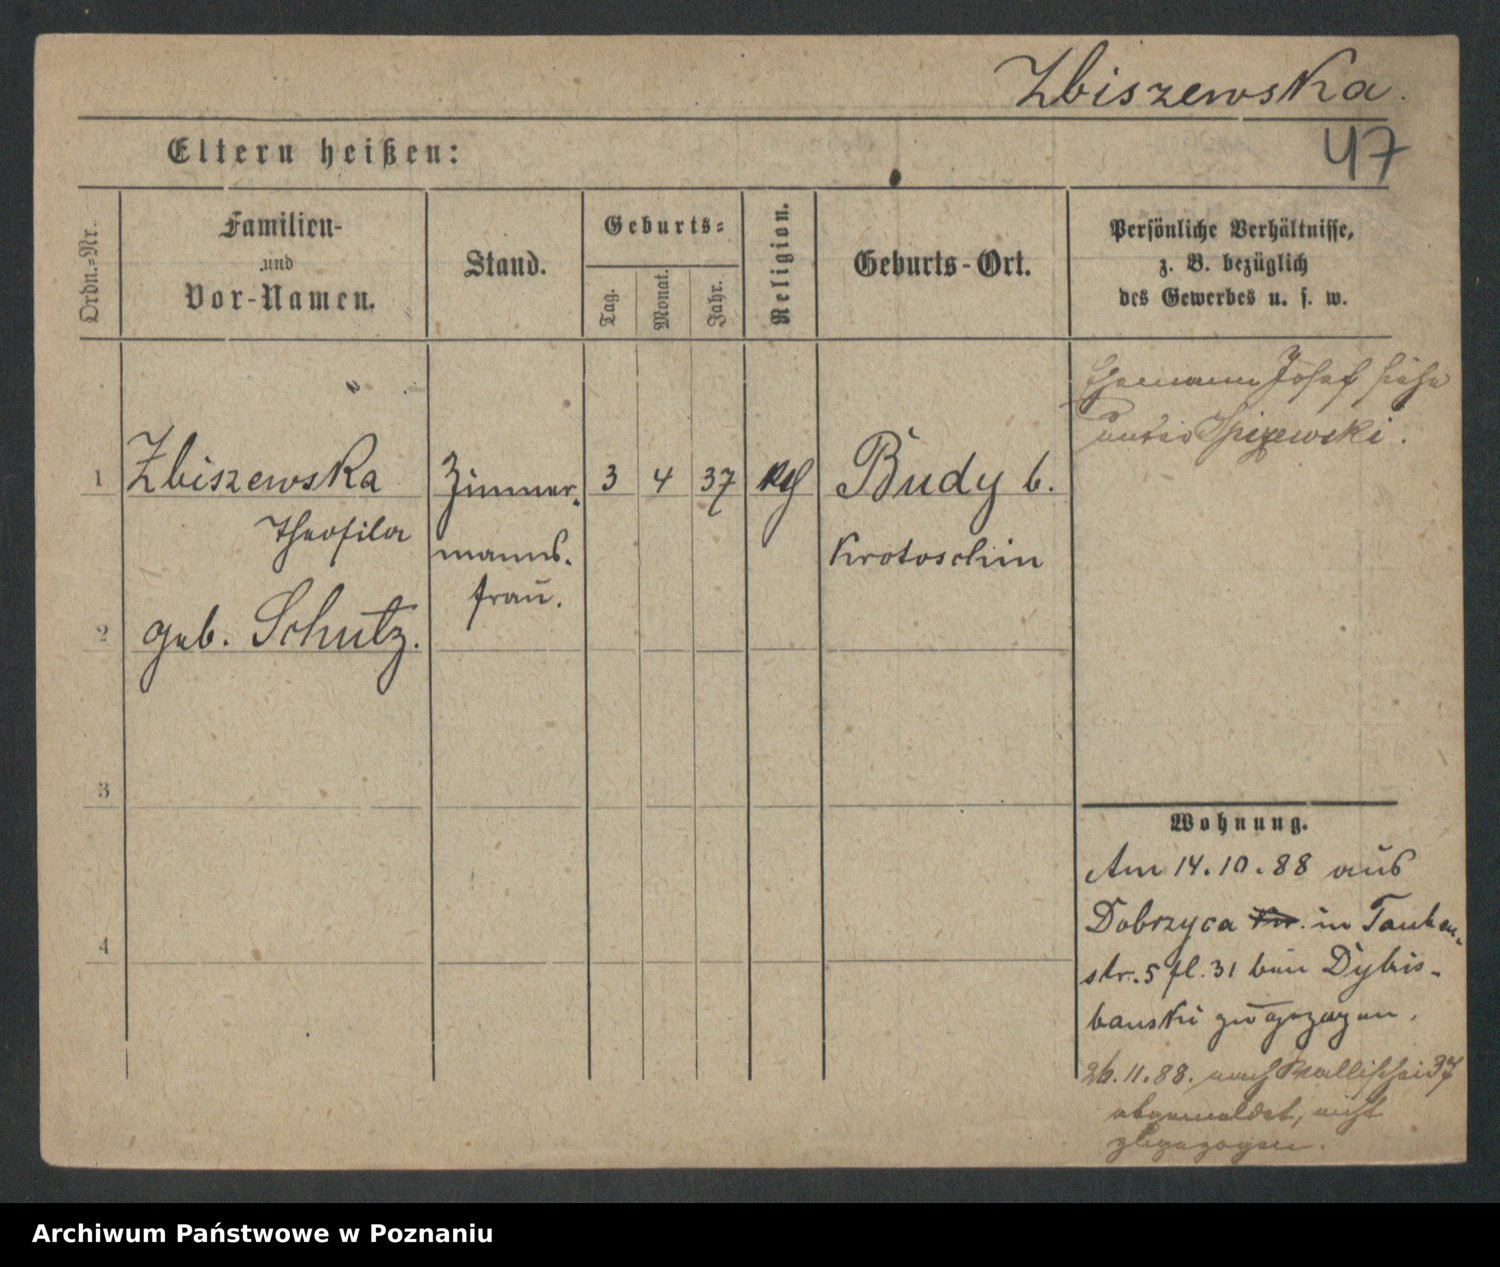 Zbiszewska.
47
Eltern heißen:
Ordn.=Nr.
Familien-
und
Vor-Namen.
Stand.
Geburts=
Tag.
Monat.
Jahr.
Religion.
Geburts-Ort.
Persönliche Verhältnisse,
z. B. bezüglich
des Gewerbes u. s. w.
Ehemann Josef siehe
unter Spizewski.
1 Zbiszewska Zimmer- 3 4 37 kth Budy b.
Theofila manns- Krotoschin
frau.
2 geb. Schutz.
3
4
Wohnung.
Am 14.10.88 aus
Dobrzyca in Tauben-
str. 5 fl. 31 bei Dybis-
banski zugezogen.
26.11.88. nach Wallischei 37
abgemeldet, nicht
zugezogen.
Archiwum Państwowe w Poznaniu